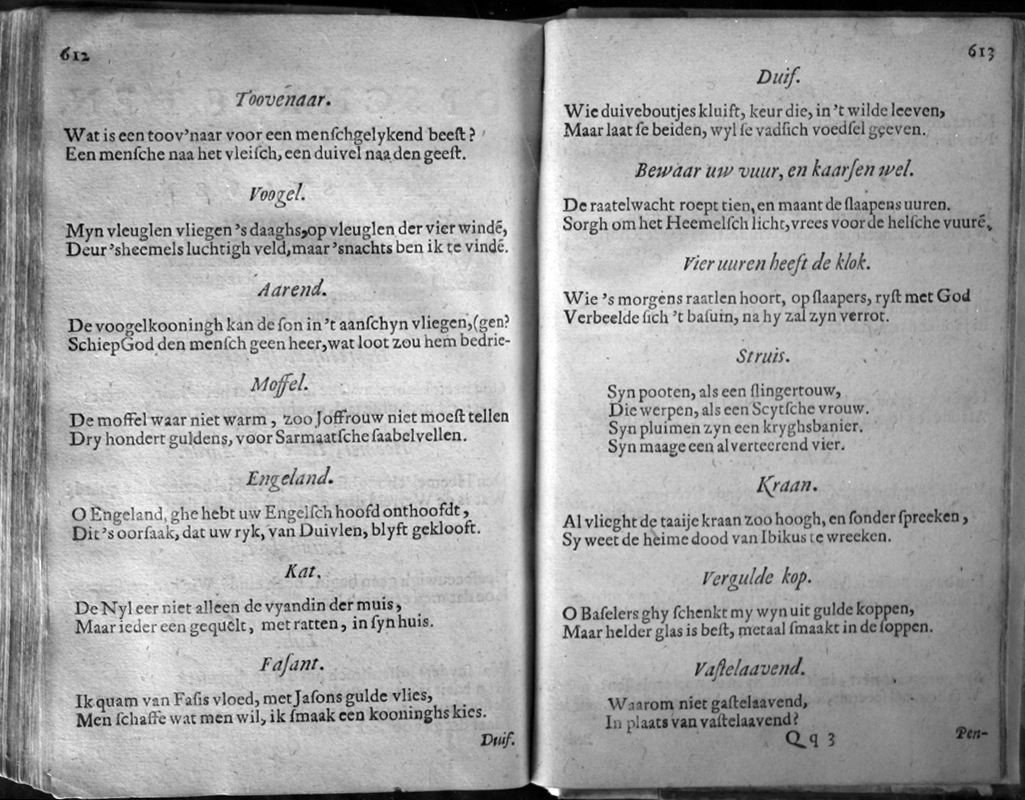 612
Toovenaar.
Wat is een toov'naar voor een menſchgelykend beeſt?
Een menſche naa het vleiſch, een duivel naa den geeſt.
Voogel.
Myn vleuglen vliegen 's daaghs, op vleuglen der vier windē,
Deur 'sheemels luchtigh veld, maar 'snachts ben ik te vindē.
Aarend.
De voogelkooningh kan de ſon in 't aanſchyn vliegen, (gen?
Schiep God den menſch geen heer, wat loot zou hem bedrie-
Moffel.
De moffel waar niet warm, zoo Joffrouw niet moeſt tellen
Dry hondert guldens, voor Sarmaatſche ſaabelvellen.
Engeland.
O Engeland, ghe hebt uw Engelſch hoofd onthoofdt,
Dit's oorſaak, dat uw ryk, van Duivlen, blyft geklooft.
Kat.
De Nyl eer niet alleen de vyandin der muis,
Maar ieder een gequelt, met ratten, in ſyn huis.
Faſant.
Ik quam van Faſis vloed, met Jaſons gulde vlies,
Men ſchaffe wat men wil, ik ſmaak een kooninghs kies.
Duif.
613
Duif.
Wie duiveboutjes kluift, keur die, in 't wilde leeven,
Maar laat ſe beiden, wyl ſe vadſich voedſel geeven.
Bewaar uw vuur, en kaarſen wel.
De raatelwacht roept tien, en maant de ſlaapens uuren.
Sorgh om het Heemelſch licht, vrees voor de helſche vuurē.
Vier uuren heeft de klok.
Wie 's morgens raatlen hoort, op ſlaapers, ryſt met God
Verbeelde ſich 't baſuin, na hy zal zyn verrot.
Struis.
Syn pooten, als een ſlingertouw,
Die werpen, als een Scytſche vrouw.
Syn pluimen zyn een kryghsbanier.
Syn maage een alverteerend vier.
Kraan.
Al vlieght de taaije kraan zoo hoogh, en ſonder ſpreeken,
Sy weet de heime dood van Ibikus te wreeken.
Vergulde kop.
O Baſelers ghy ſchenkt my wyn uit gulde koppen,
Maar helder glas is beſt, metaal ſmaakt in de ſoppen.
Vaſtelaavend.
Waarom niet gaſtelaavend,
In plaats van vaſtelaavend?
Qq 3
Pen-